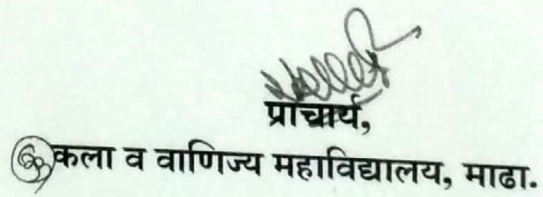 प्राचार्य,
कला व वाणिज्य महाविद्यालय, माढा.